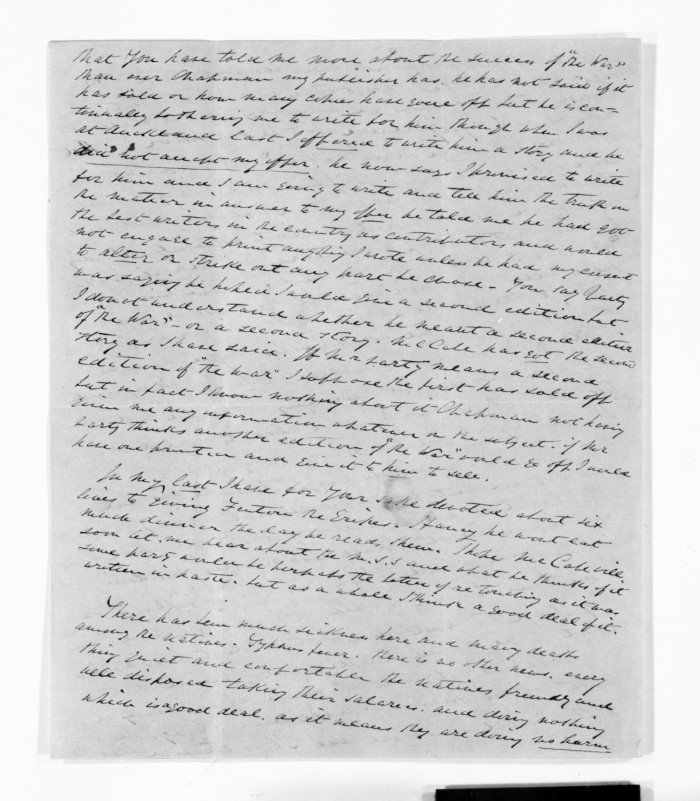 that you have told me more about the success of "the War"
than ever Chapman my publisher has. he has not said if it
has sold or how many copies have gone off but he is con-
tinually bothering me to write for him though when I was
at Auckland last I offered to write him a story and he
did not accept my offer. he now says I promised to write
for him and I am going to write and tell him the truth on
the matter in answer to my offer he told me he had got
the best writers in the country as contributors and would
not engage to print anything I wrote unless he had my consent
to alter or strike out any part he chose – You say Varty
was saying he hoped I would give a second edition but –
I do not understand whether he meant a second edition
of "the War" – or a second story. McCabe has got the second
story as I have said. If Mr Varty means a second
edition of "the War" I suppose the first has sold off
but in fact I know nothing about it Chapman not having
given me any information whatever on the subject. if Mr
Varty thinks another edition of "the War" would go off I would
have one printed and give it to him to sell.
In my last I have for your sake devoted about six
lines to giving Fenton the Gripes. I fancy he wont eat
much dinner the day he reads them. I hope McCabe will
soon let me hear about the M.S.S and what he thinks of it
some parts would be perhaps the better of retouching as it was
written in haste. but as a whole I think a good deal of it.
There has been much sickness here and many deaths
among the natives. Typhus fever. there is no other news. every
thing quiet and comfortable the natives friendly and
well disposed taking their salaries. and doing nothing
which is a good deal. as it means they are doing no harm